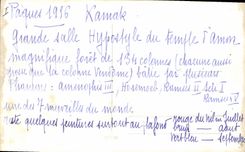 Pâques 1936 Karnak
Grande salle Hypostyle du temple d'Amon
magnifique forêt de 134 colonnes (chacune aussi
grosse que la colonne Vendôme) bâtie par plusieurs
Pharaons : Amenophis III, Ramsès II Seti I
Ramsès
une des 7 merveilles du monde
reste quelques peintures surtout au plafond rouge du Nil en Juillet
août
vert bleu — septembre